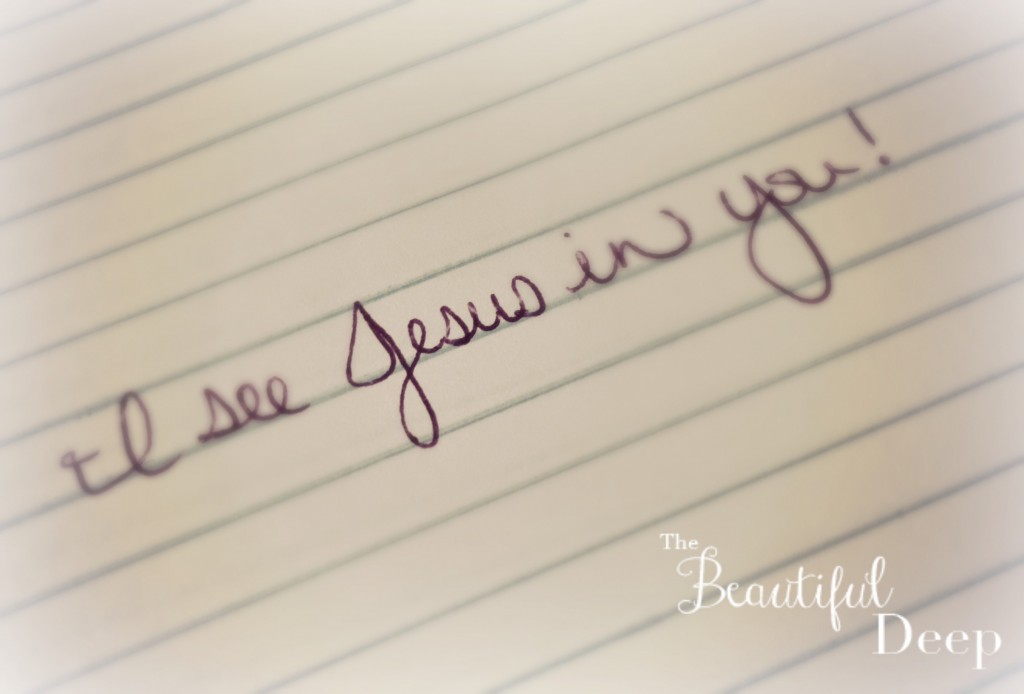 I see Jesus in you!
The
Beautiful
Deep